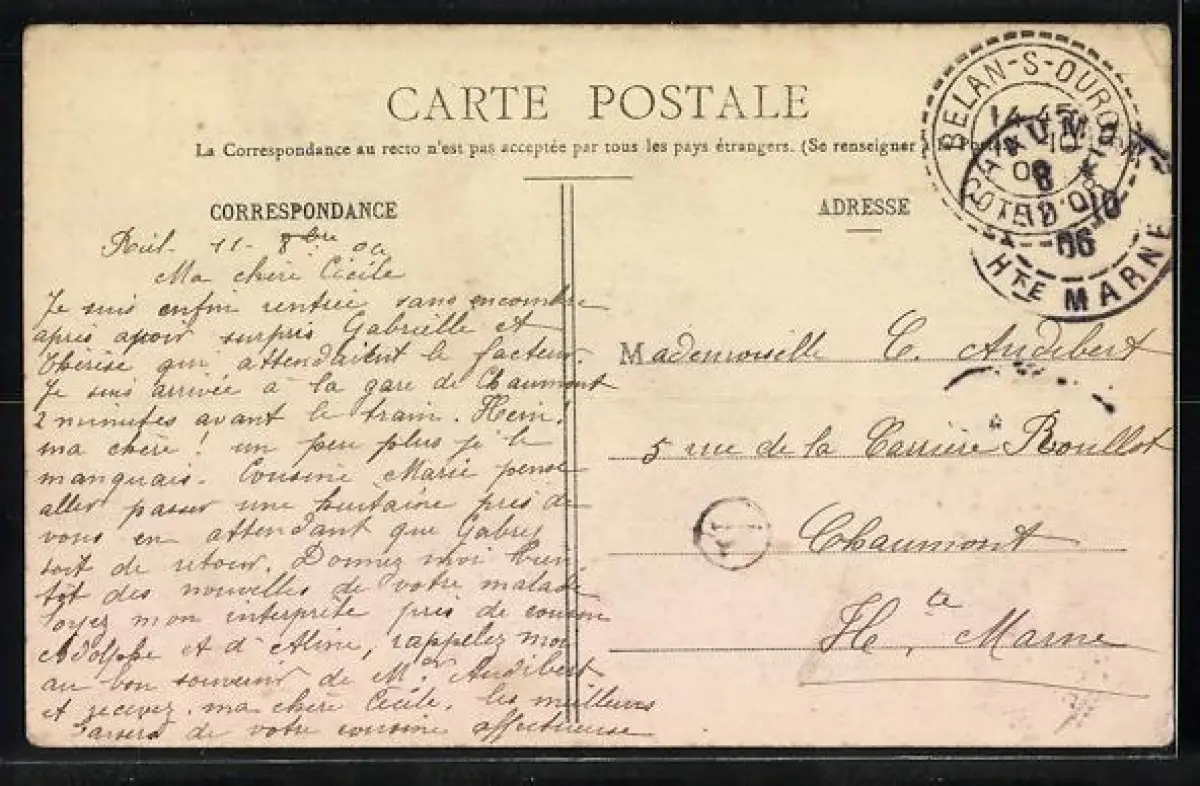 CARTE POSTALE
La Correspondance au recto n'est pas acceptée par tous les pays étrangers. (Se renseigner à la Poste)
CORRESPONDANCE
11 - 8bre
Ma chère Cécile
Je suis enfin rentrée sans encombre
après avoir surpris Gabrielle et
Thérèse qui attendaient le facteur.
Je suis arrivée à la gare de Chaumont
2 minutes avant le train. Hein!
ma chère! un peu plus je le
manquais. Cousine Marie pense
aller passer une huitaine près de
vous en attendant que Gabrey
soit de retour. Donnez moi bien
tôt des nouvelles de votre malade
soyez mon interprète près de cousin
Adolphe et d'Aline, rappelez moi
au bon souvenir de Mr Audibert
et recevez, ma chère Cécile, les meilleurs
baisers de votre cousine affectueuse
ADRESSE
Mademoiselle C. Audibert
5 rue de la Carrière Roullot
Chaumont
Hte Marne
BELAN-S-OURCE
COTE D'OR
HTE MARNE